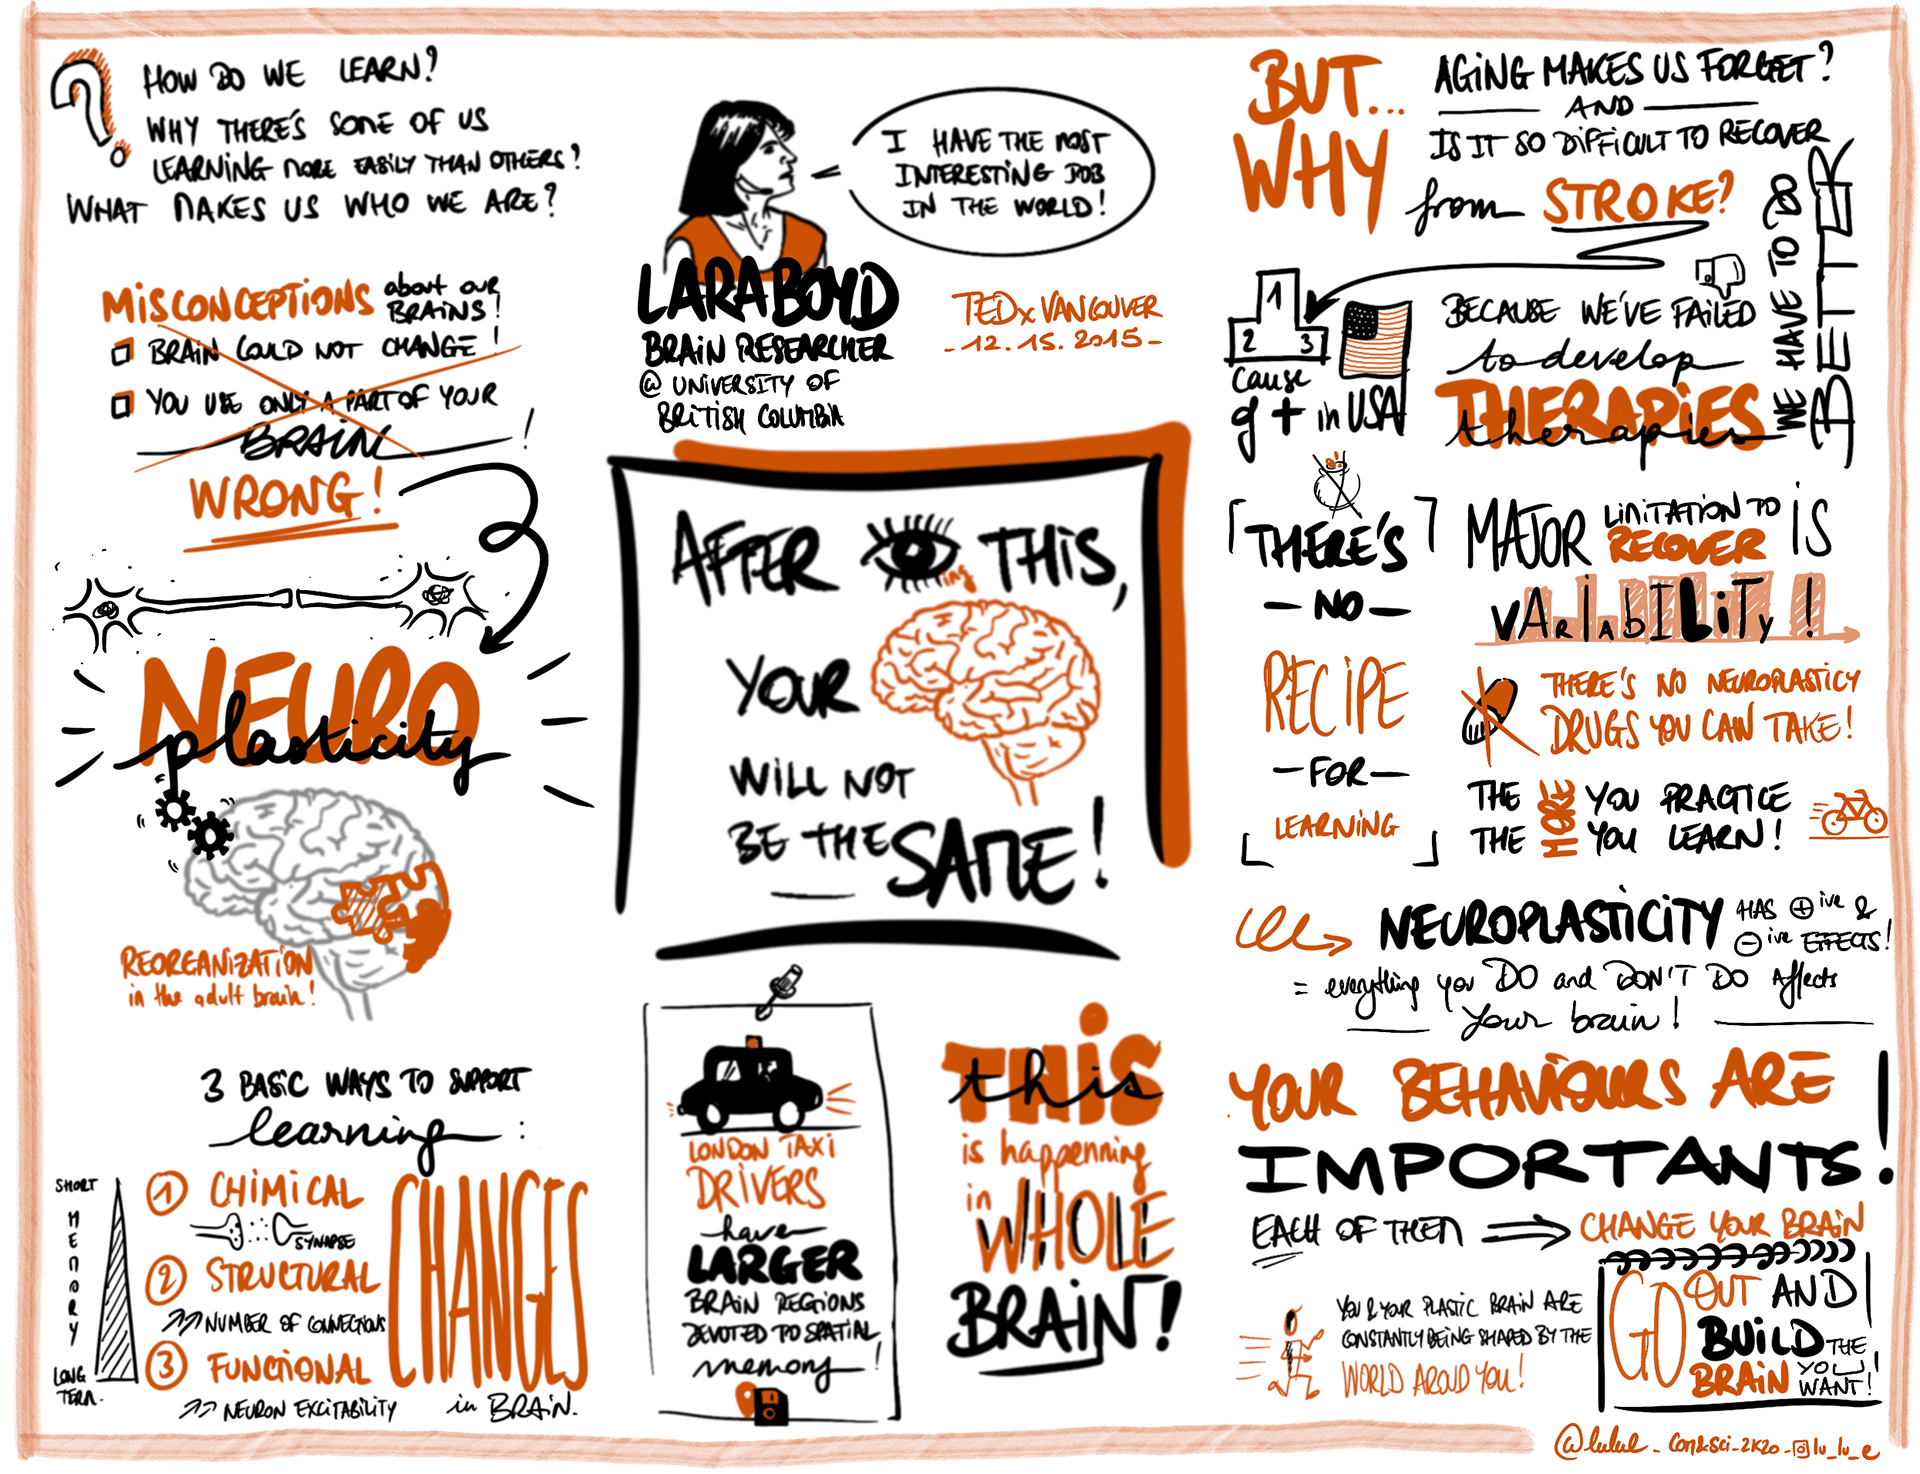 ?
HOW DO WE LEARN?
WHY THERE'S SOME OF US
LEARNING MORE EASILY THAN OTHERS?
WHAT MAKES US WHO WE ARE?
MISCONCEPTIONS about our
BRAINS!
BRAIN COULD NOT CHANGE!
YOU USE ONLY A PART OF YOUR
BRAIN!
WRONG!
NEURO
plasticity
REORGANIZATION
in the adult brain!
3 BASIC WAYS TO SUPPORT
learning:
SHORT
MEMORY
LONG
TERM
1 CHIMICAL
SYNAPSE
2 STRUCTURAL
NUMBER OF CONNECTIONS
3 FUNCTIONAL
NEURON EXCITABILITY
CHANGES
in BRAIN.
I HAVE THE MOST
INTERESTING JOB
IN THE WORLD!
LARA BOYD
BRAIN RESEARCHER
@ UNIVERSITY OF
BRITISH COLUMBIA
TEDx VANCOUVER
- 12.15.2015 -
AFTER ing THIS,
YOUR
WILL NOT
BE THE SAME!
LONDON TAXI
DRIVERS
have
LARGER
BRAIN REGIONS
DEVOTED TO SPATIAL
memory!
THIS
this
is happenning
in WHOLE
BRAIN!
BUT...
WHY
AGING MAKES US FORGET?
AND
IS IT SO DIFFICULT TO RECOVER
from STROKE?
1
2 3
cause
g + in USA
BECAUSE WE'VE FAILED
to develop
THERAPIES
therapies
WE HAVE TO DO
BETTER
THERE'S
- NO -
RECIPE
- FOR -
LEARNING
MAJOR LIMITATION TO
RECOVER IS
VARIABILITY!
THERE'S NO NEUROPLASTICY
DRUGS YOU CAN TAKE!
THE MORE YOU PRACTICE
THE MORE YOU LEARN!
NEUROPLASTICITY HAS + ive &
- ive EFFECTS!
= everything you DO and DON'T DO Affects
your brain!
YOUR BEHAVIOURS ARE
IMPORTANTS!
EACH OF THEM CHANGE YOUR BRAIN
YOU & YOUR PLASTIC BRAIN ARE
CONSTANTLY BEING SHAPED BY THE
WORLD AROUD YOU!
GO OUT AND
BUILD THE
BRAIN YOU
WANT!
@lulue_Com&Sci_2K20_ lu_lu_e